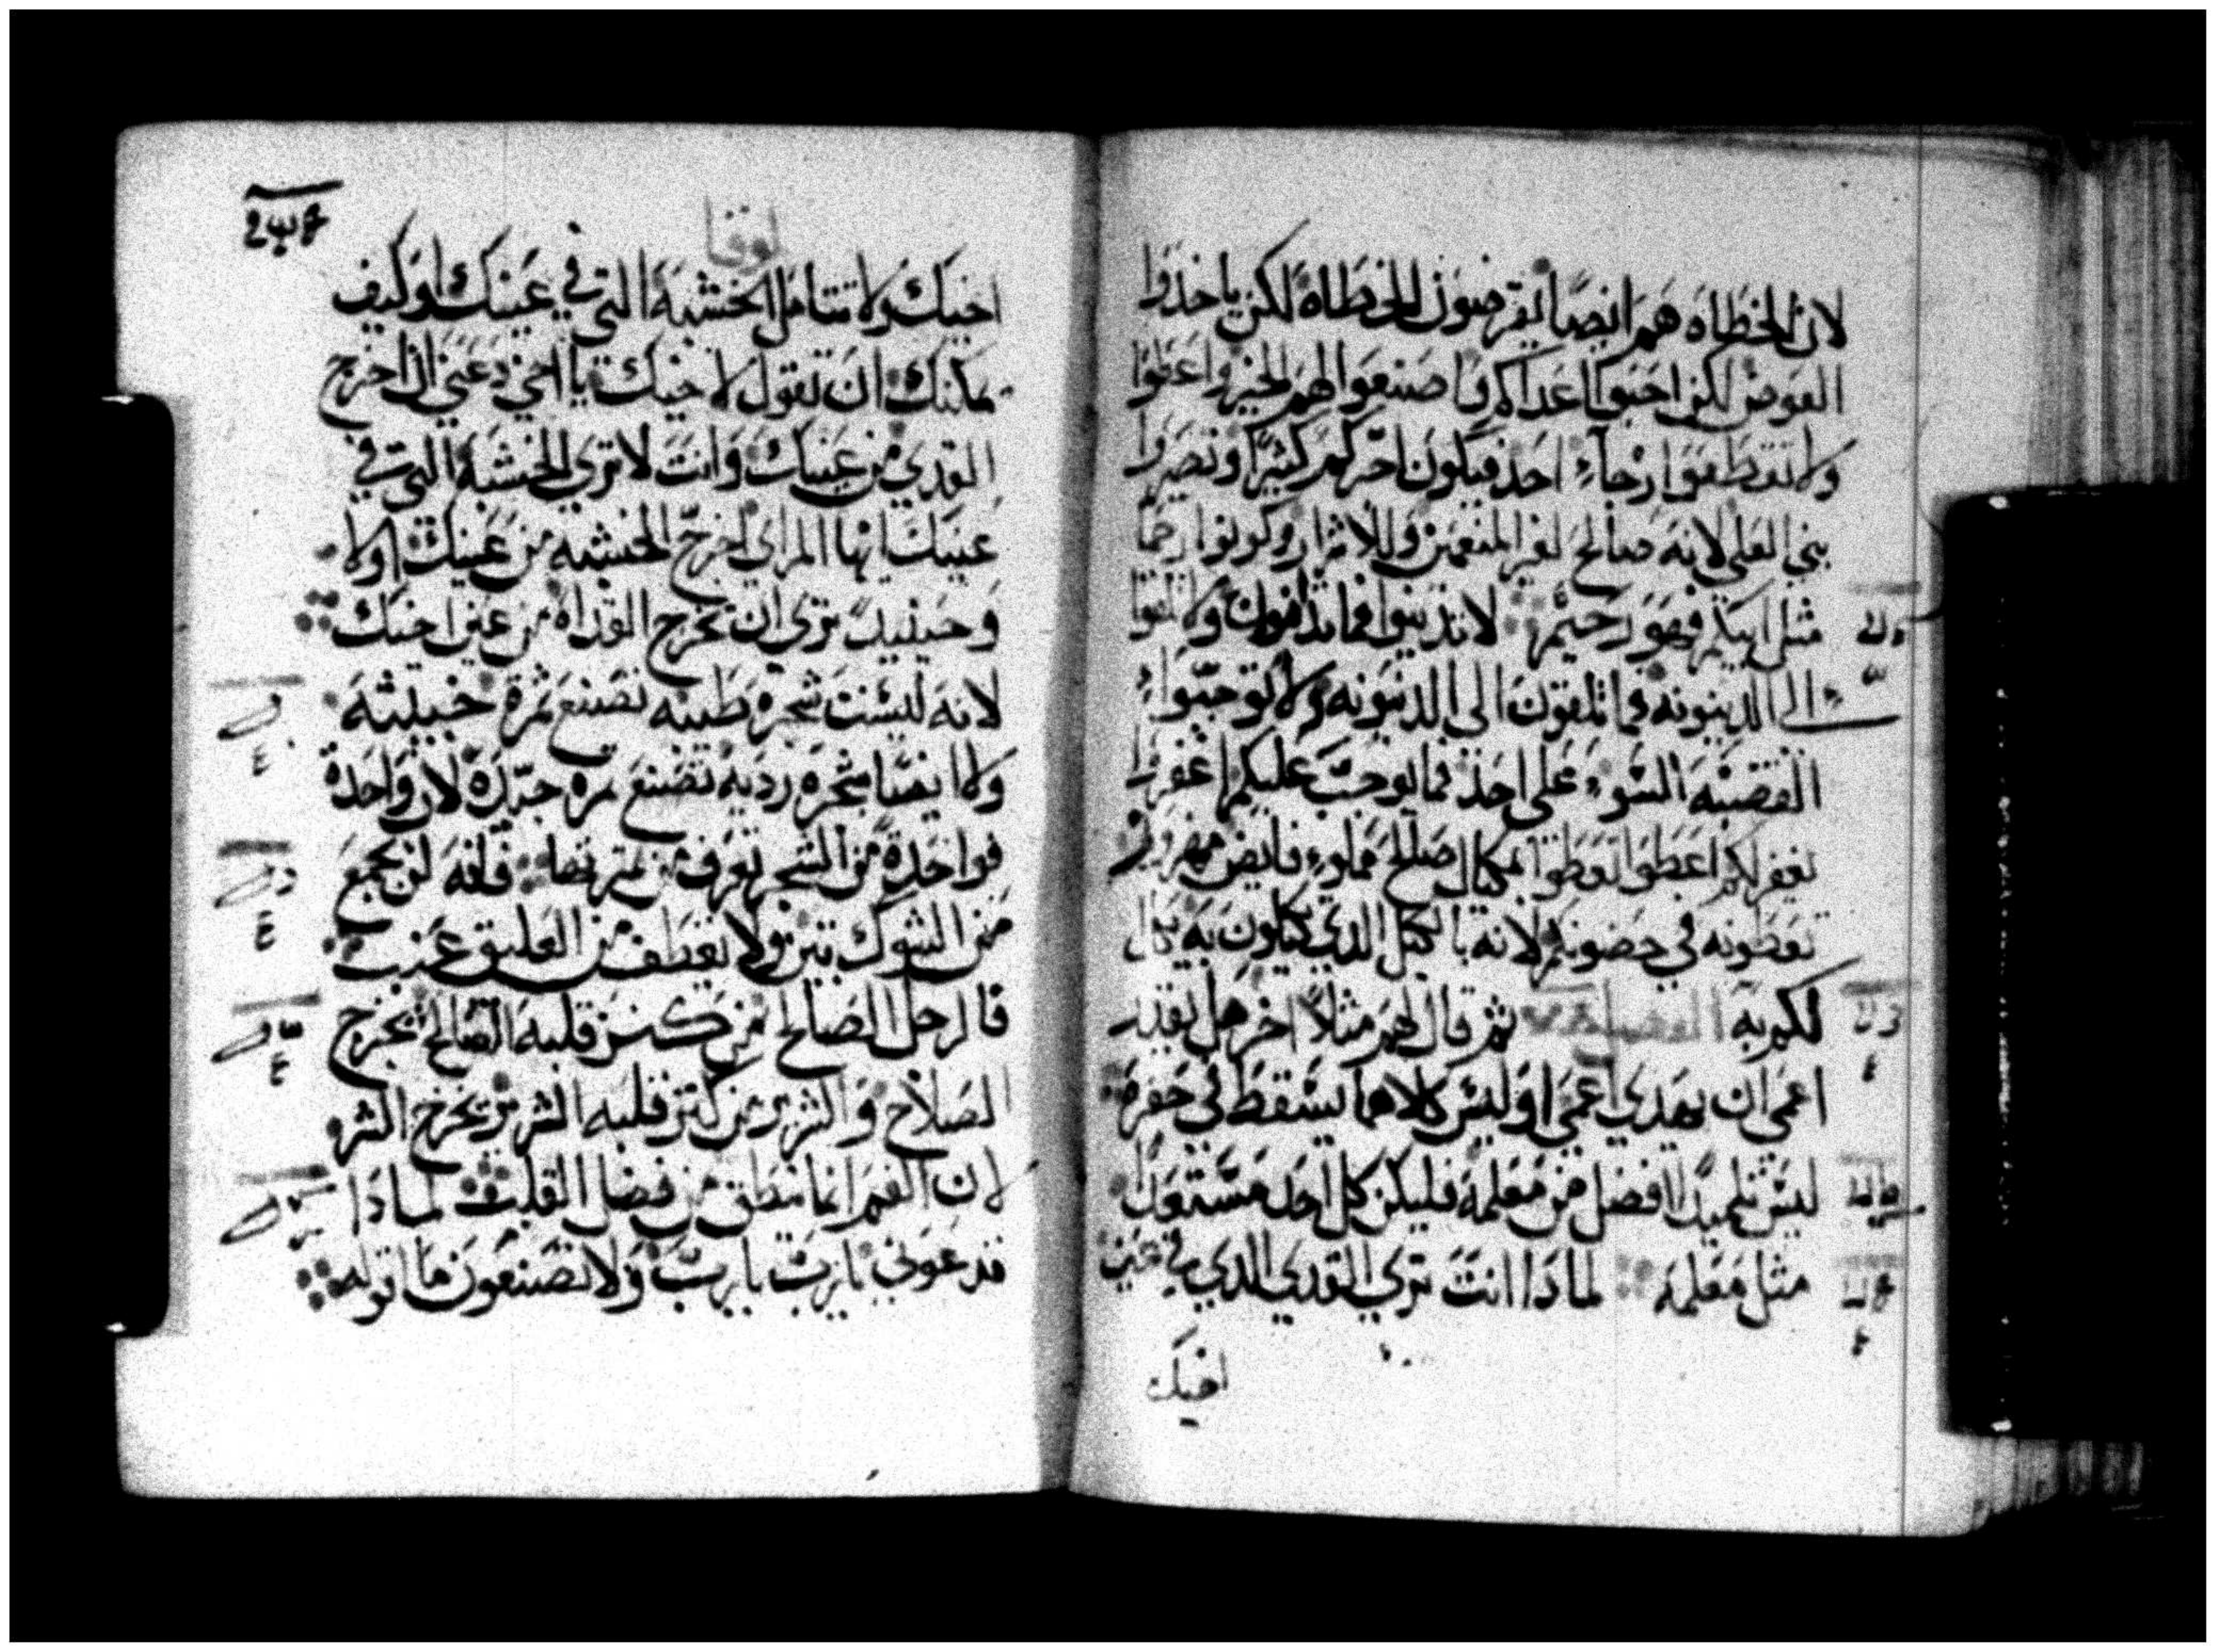 لان الخطاه هم ايضا يقرضون للخطاه لكن ياخذوا
العوض لكن احبوا اعداكم واصنعوا لهم الخير واعطوا
ولا تقطعوا رجاء احد فيكون اجركم كثيرا وتصيروا
بني العلي لانه صالح لغير المنعمين وللاشرار وكونوا رحما
مثل ابيكم فهو رحيم لا تدينوا فما تدانون ولا تلقوا
الى الدينونه فما تلقون الى الدينونه ولا توجبوا
القضيه السوء على احد فما يوجب عليكم اغفروا
يغفر لكم اعطوا تعطوا بمكيال صالح مملوء فايض مهزوز
تعطونه في حضونكم لانه بالكيل الذي تكيلون به يكال
لكم به ثم قال لهم مثلا اخر هل يقدر
اعمى ان يهدي اعمى اوليس كلاهما يسقط في حفرة
ليس تلميدا افضل من معلمه فليكن كل احد مستعدا
مثل معلمه لماذا انت ترى القدى الذي في عين
اخيك
لوقا
اخيك ولا تتامل الخشبه التي في عينك او كيف
يمكنك ان تقول لاخيك يا اخي دعني ان اخرج
القدى من عينك وانت لا ترى الخشبه التي في
عينك ايها المرائي اخرج الخشبه من عينك اولا
وحينيد ترى ان تخرج القداه من عين اخيك
لانه ليست شجره طيبه تصنع ثمرة خبيثه
ولا ايضا شجره رديه تصنع ثمره جيده لان واحدة
فواحدة من الشجر تعرف من ثمرتها فانه لن يجمع
من الشوك تين ولا يقطف من العليق عنب
فالرجل الصالح من كنز قلبه الصالح يخرج
الصلاح والشرير من كنز قلبه الشرير يخرج الشر
لان الفم انما ينطق من فضل القلب لماذا
تدعوني يا رب يا رب ولا تصنعون ما اقوله